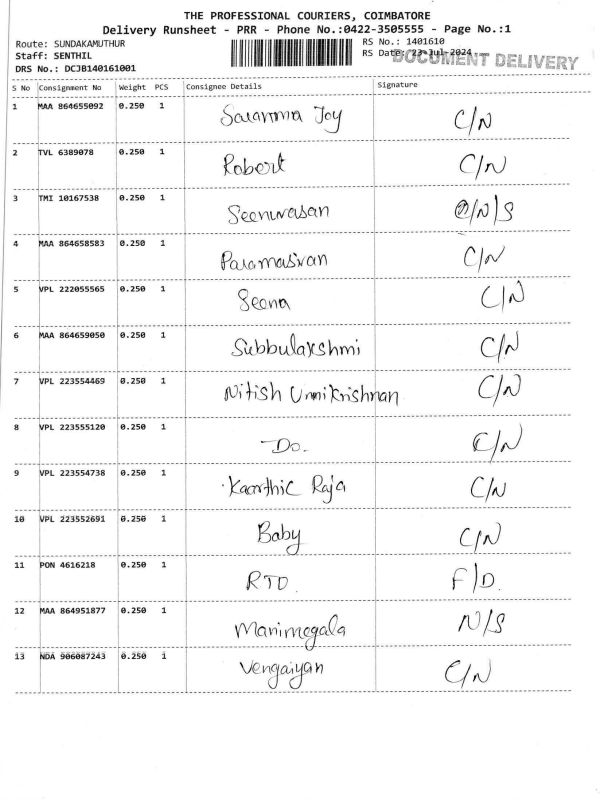 THE PROFESSIONAL COURIERS, COIMBATORE
Delivery Runsheet - PRR - Phone No.:0422-3505555 - Page No.:1
Route: SUNDAKAMUTHUR RS No.: 1401610
Staff: SENTHIL RS Date: 23-Jul-2024 DOCUMENT DELIVERY
DRS No.: DCJB140161001
S No Consignment No Weight PCS Consignee Details Signature
1 MAA 864655092 0.250 1 Saramma Joy C/N
2 TVL 6389078 0.250 1 Robert C/N
3 TMI 10167538 0.250 1 Seenivasan /N/S
4 MAA 864658583 0.250 1 Paramasivan C/N
5 VPL 222055565 0.250 1 Seena C/N
6 MAA 864659050 0.250 1 Subbulakshmi C/N
7 VPL 223554469 0.250 1 Nitish Unnikrishnan C/N
8 VPL 223555120 0.250 1 -Do. C/N
9 VPL 223554738 0.250 1 Kaarthic Raja C/N
10 VPL 223552691 0.250 1 Baby C/N
11 PON 4616218 0.250 1 RTO F/D.
12 MAA 864951877 0.250 1 Manimegala N/S
13 NDA 906087243 0.250 1 Vengaiyan C/N